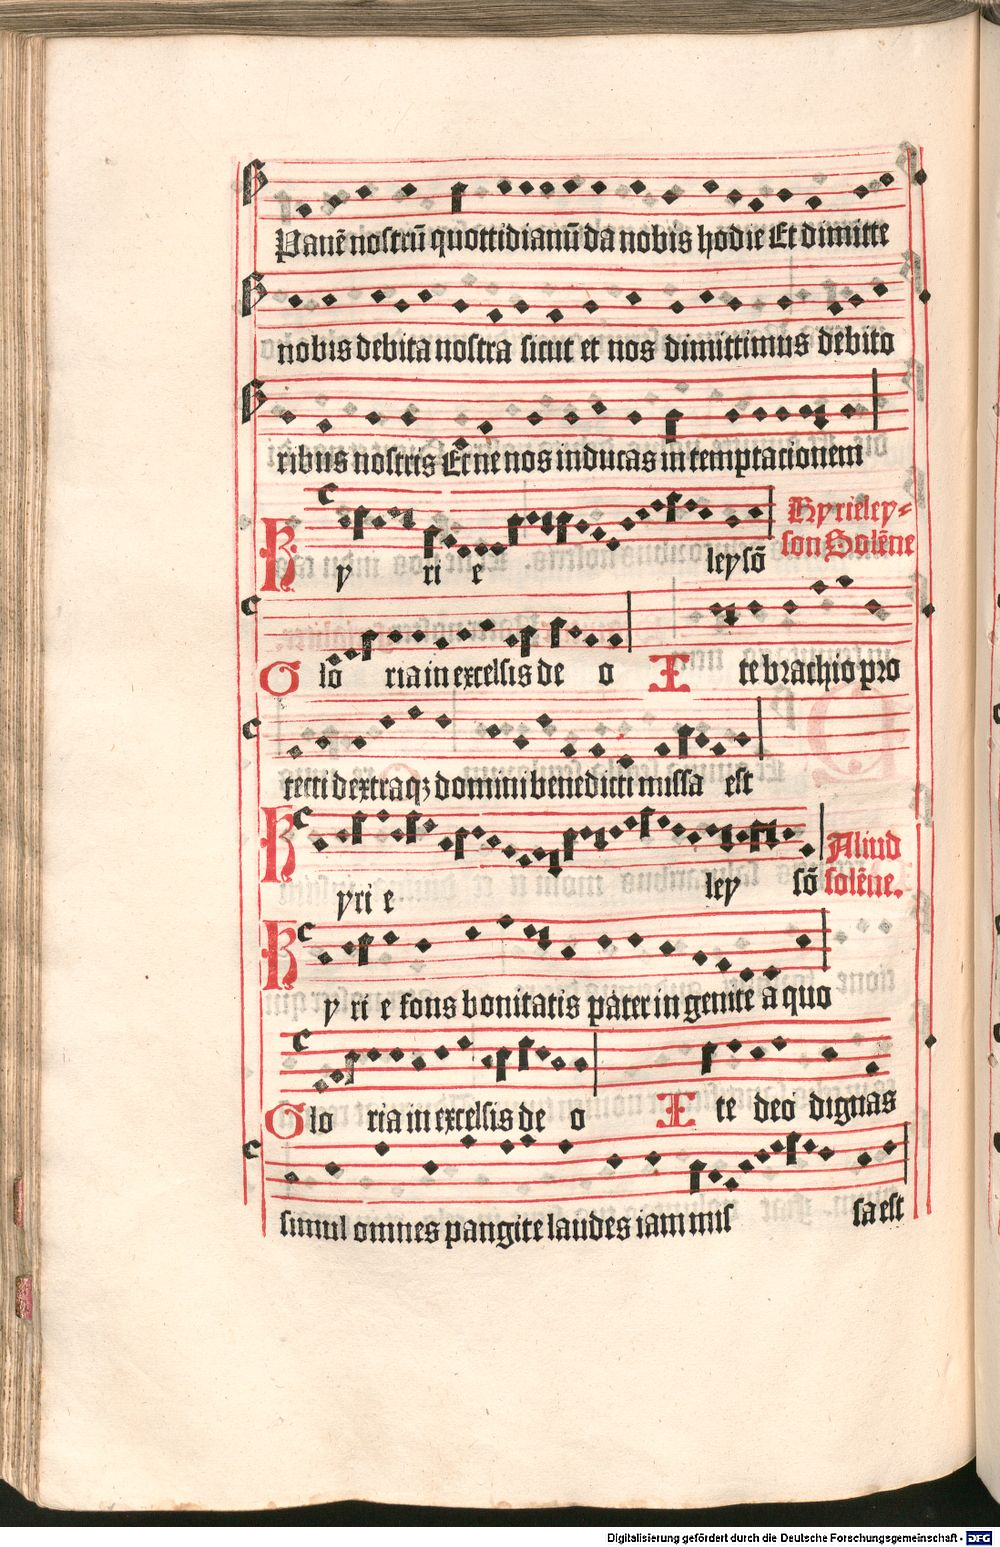 Panē nostrū quottidianū da nobis hodie Et dimitte
nobis debita nostra sicut et nos dimittimus debito
ribus nostris Et ne nos inducas in temptacionem
Kyrieley=
son Solēne
Ky ri e leysō
Glo ria in excelsis de o Ite brachio pro
tecti dextraqꝫ domini benedicti missa est
Aliud
solēne.
Kyri e ley sō
Ky ri e fons bonitatis pater ingenite a quo
Glo ria in excelsis de o Ite deo dignas
simul omnes pangite laudes iam mis sa est
Digitalisierung gefördert durch die Deutsche Forschungsgemeinschaft - DFG